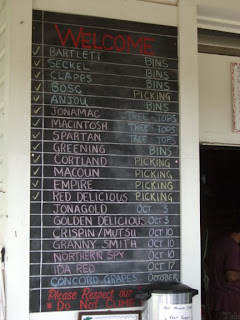 WELCOME
✓ BARTLETT BINS
✓ SECKEL BINS
✓ CLAPPS BINS
✓ BOSC PICKING
✓ ANJOU BINS
JONAMAC TREE-TOPS
✓ MACINTOSH TREE TOPS
✓ SPARTAN TREE TOPS
✓ GREENING BINS
✓ CORTLAND PICKING
✓ MACOUN PICKING
✓ EMPIRE PICKING
✓ RED DELICIOUS PICKING
JONAGOLD OCT 3
GOLDEN DELICIOUS OCT 3
CRISPIN/MUTSU OCT 10
GRANNY SMITH OCT 10
NORTHERN SPY OCT 10
IDA RED OCT 17
CONCORD GRAPES OCTOBER
Please Respect our
* Do Not Climb